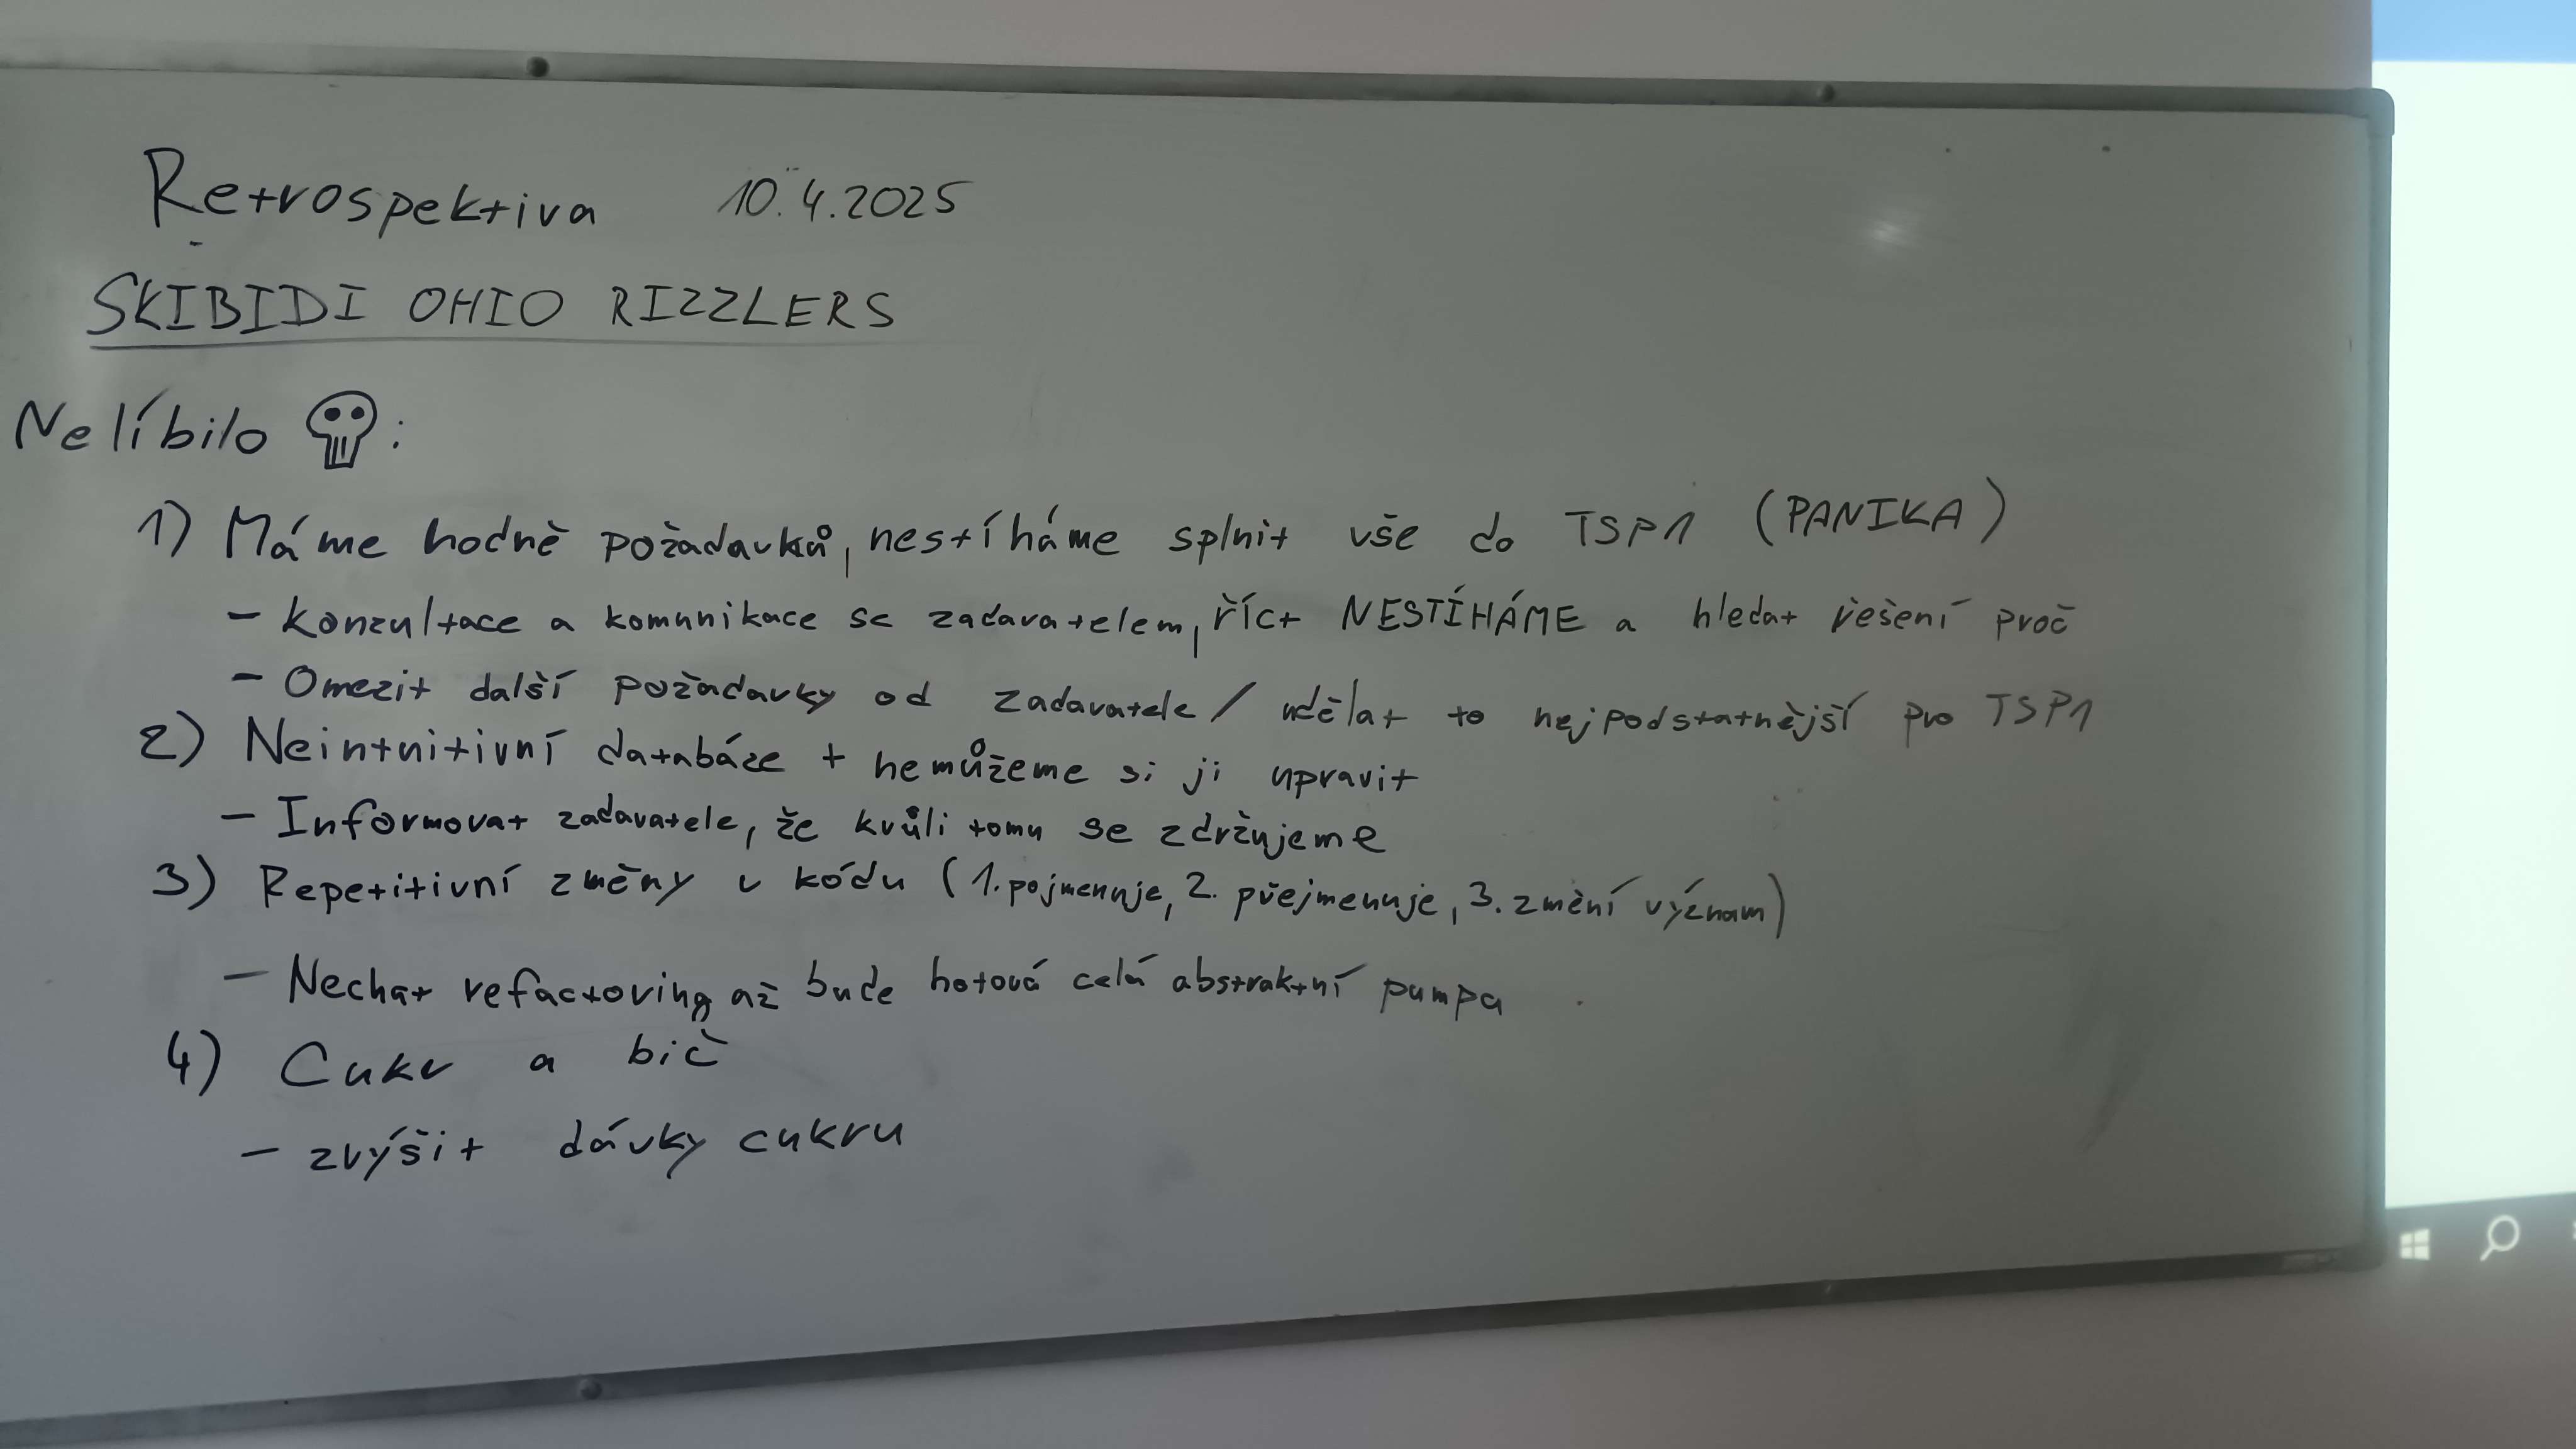 Retrospektiva 10.4.2025
SKIBIDI OHIO RIZZLERS
Nelíbilo :
1) Máme hodně požadavků, nestíháme splnit vše do TSP1 (PANIKA)
- Konzultace a komunikace se zadavatelem, říct NESTÍHÁME a hledat řešení proč
- Omezit další požadavky od zadavatele / udělat to nejpodstatnější pro TSP1
2) Neintuitivní databáze + nemůžeme si ji upravit
- Informovat zadavatele, že kvůli tomu se zdržujeme
3) Repetitivní změny v kódu (1. pojmenuje, 2. přejmenuje, 3. změní význam)
- Nechat refactoring až bude hotová celá abstraktní pumpa
4) Cukr a bič
- zvýšit dávky cukru